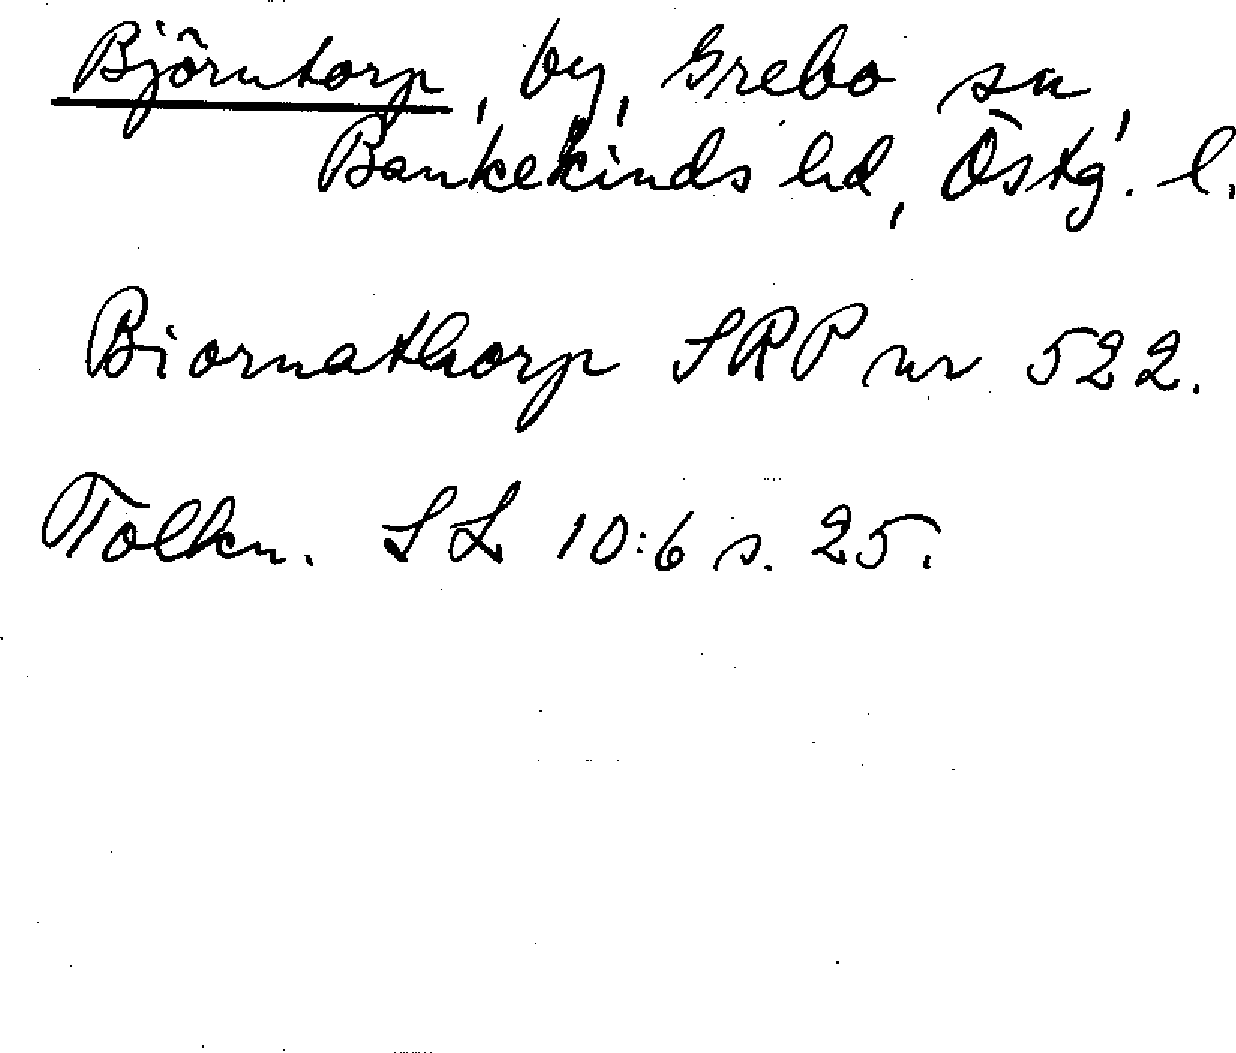 Björntorp, by, Grebo sn,
Bankekinds hd, Östg. l.
Biornathorp SRP nr 522.
Tolkn. SL 10:6 s. 25.